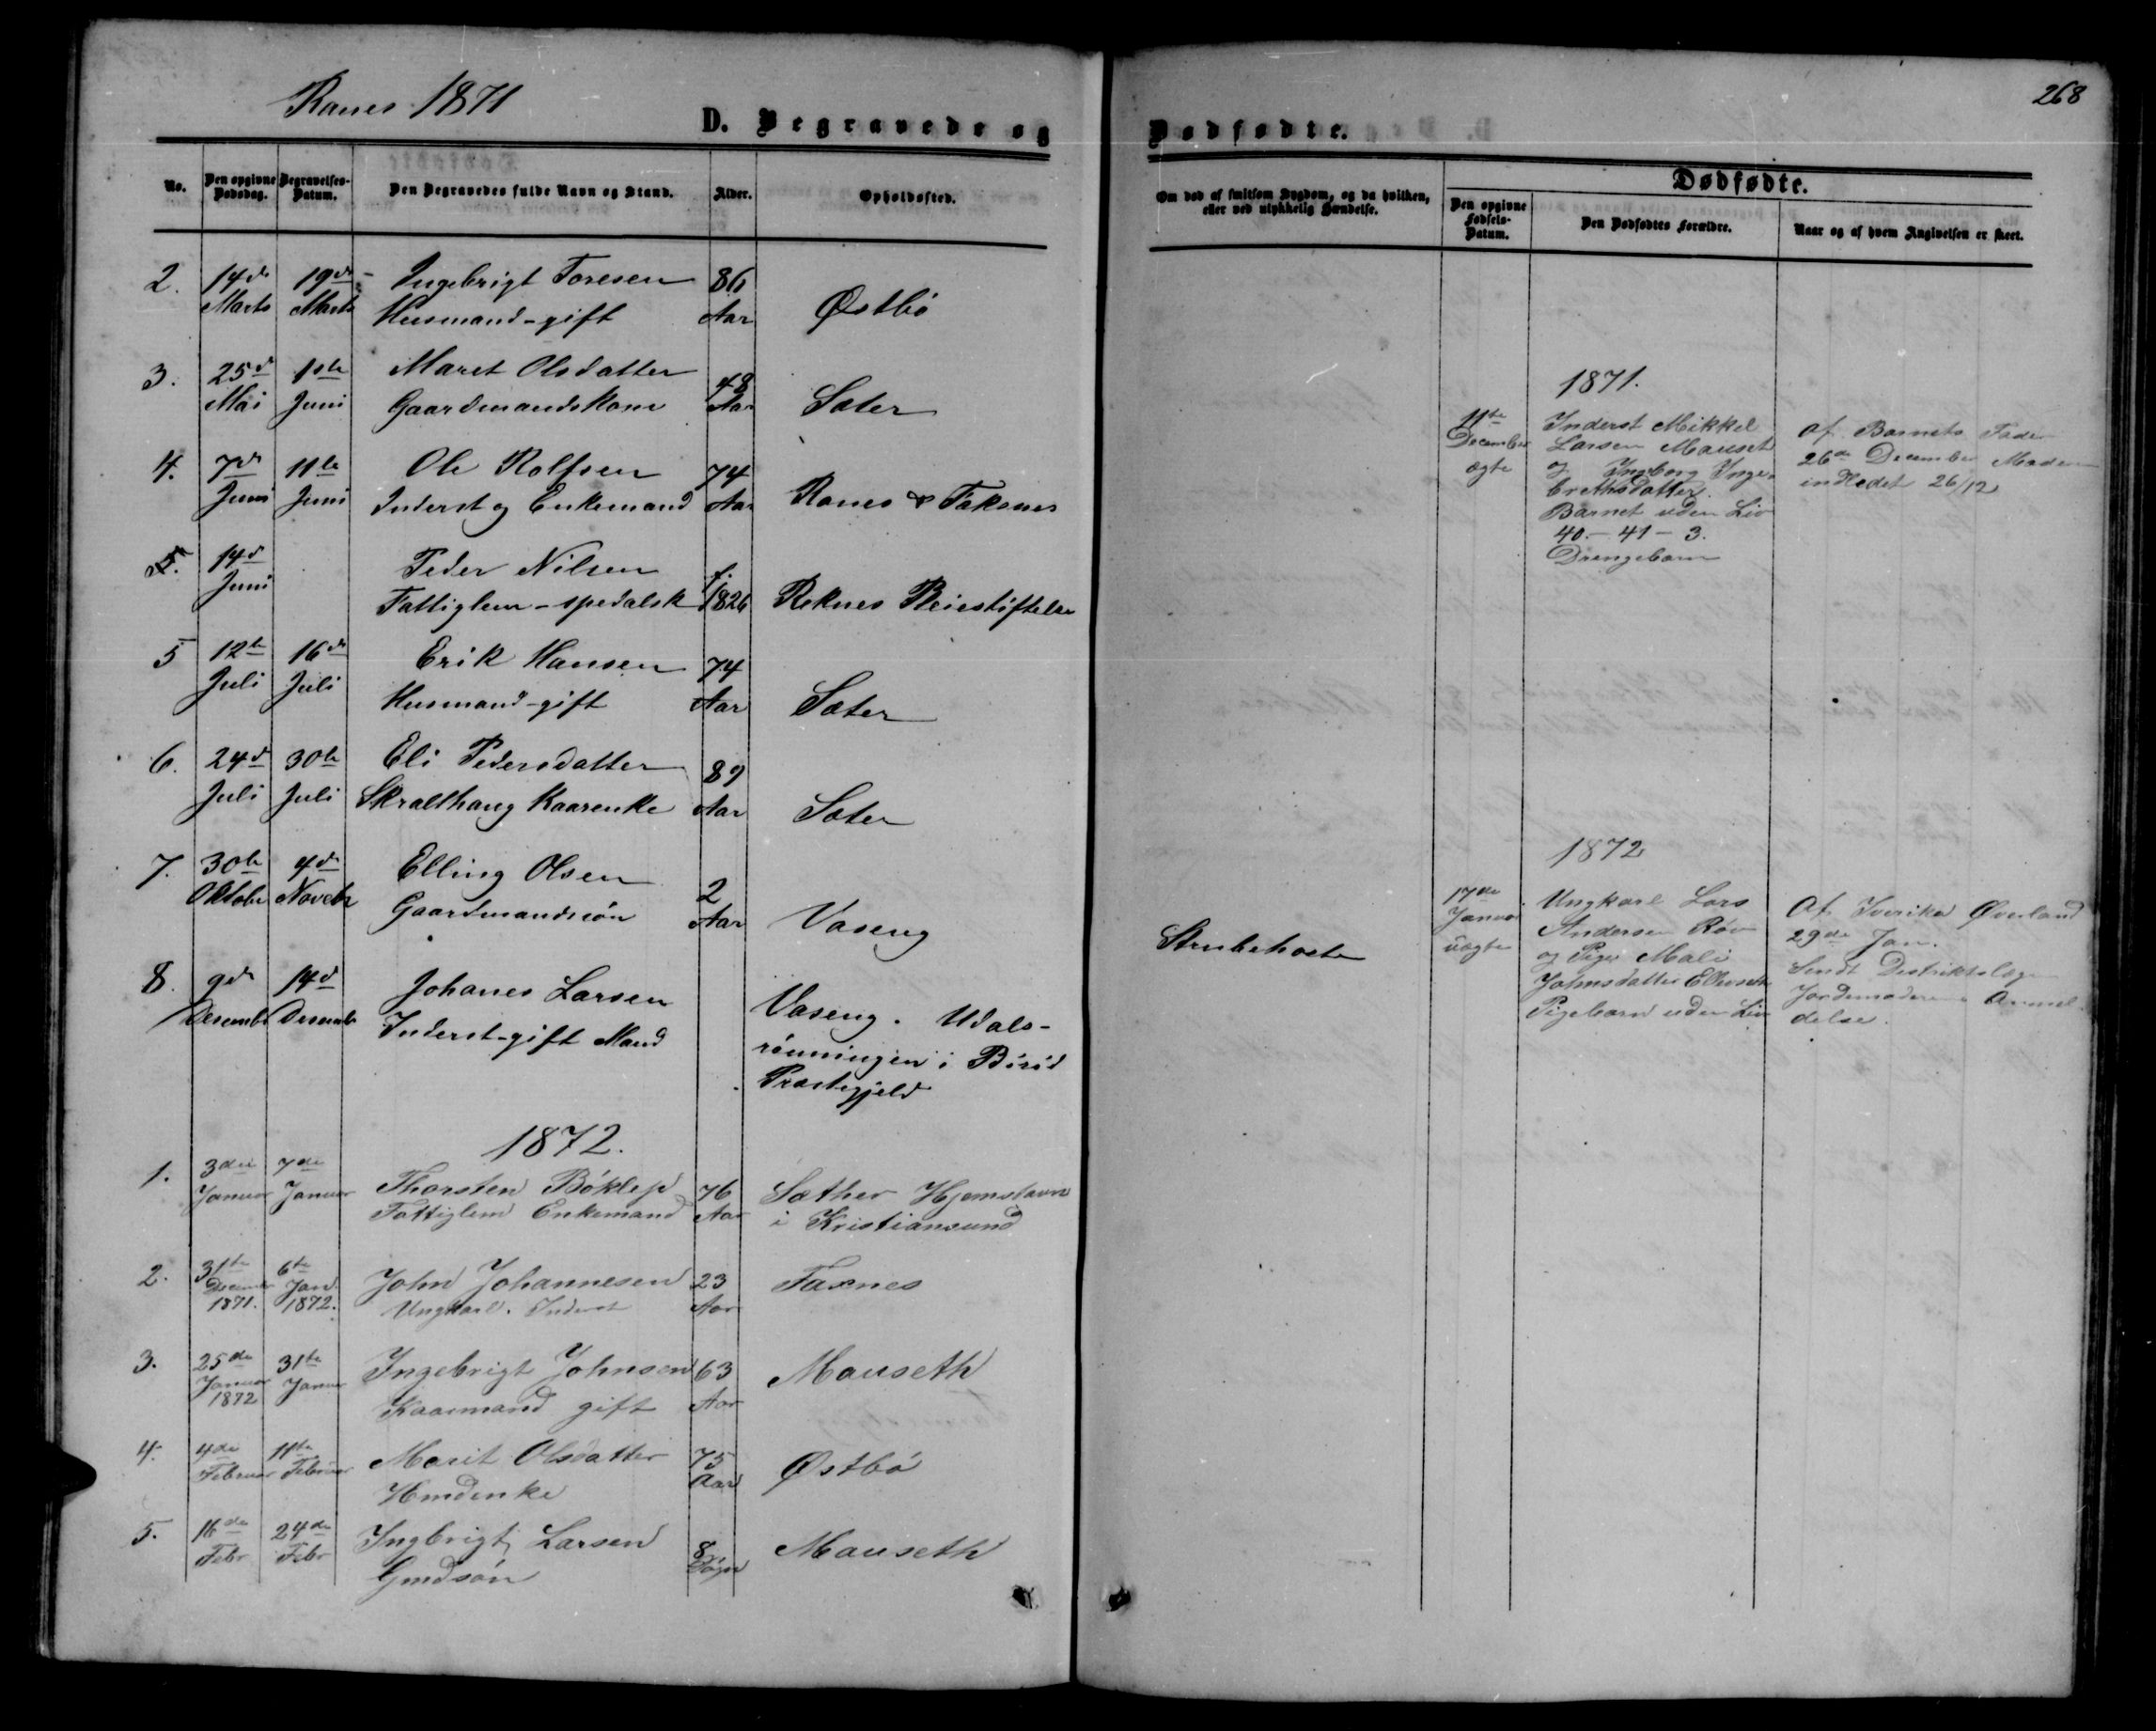 Ranes 1871
D. Begravede og
No.
Den opgivne Dødsdag.
Begravelses-Datum.
Den Begravedes fulde Navn og Stand.
Alder.
Opholdssted.
2. 14de 19de Ingebrigt Toresen 86
Marts Marts Husmand-gift Aar Østbö
3. 25de 1ste Maret Olsdatter 48
Mai Juni Gaardmandskone Aar Sæter
4. 7de 11te Ole Rolfsen 74
Juni Juni Inderst og Enkemand Aar Ranes & Faksnes
5. 14de Peder Nilsen f.
Juni Fattiglem-spedalsk 1826 Reknes Pleiestiftelse
5 12te 16de Erik Hansen 74
Juli Juli Husmand-gift Aar Sæter
6. 24de 30te Eli Pedersdatter 89
Juli Juli Skralthaug Kaarenke Aar Sæter
7. 30te 4de Elling Olsen 2
Oktober Novebr Gaardmandssön Aar Vaseng
8. 9de 14de Johanes Larsen Vaseng. Udals-
Desembr Desembr Inderst-gift Mand rönningen i Birid
Præstegjeld
1872.
1. 3die 7de Thorsten Böklep 76 Sæther Hjemstavn
Januar Januar Fattiglem Enkemand Aar i Kristiansund
2. 31te 6te John Johannesen 23 Faxnes
December Jan Ungkarl. Inderst Aar
1871. 1872.
3. 25de 31te Ingebrigt Johnsen 63 Mauseth
Januar Januar Kaarmand gift Aar
1872
4. 4de 11te Marit Olsdatter 75 Østbö
Februar Februar Hmdenke Aar
5. 16de 24de Ingbrigt Larsen 8 Mauseth
Febr Febr Gmdsön Døgn
268
Dødfødte.
Om død af smitsom Sygdom, og da hvilken, eller ved ulykkelig Hændelse.
Dødfødte.
Den opgivne Fødsels-Datum.
Den Dødfødtes Forældre.
Naar og af hvem Angivelsen er skeet.
1871.
11te Inderst Mikkel Af Barnets Fader
December Larsen Mauset 26de December Moderen
ægte og Ingeborg Inge- indledet 26/12
brethsdatter.
Barnet uden Liv
40.-41-3.
Drengebarn
1872
Strubehoste
17de Ungkarl Lars Af Iverika Øverland
Januar Andersen Röv 29de Jan.
uægte og Pige Mali Sendt Distriktslæge
Johnsdatter Jordemoderens Anmel
Pigebarn uden Liv delse.